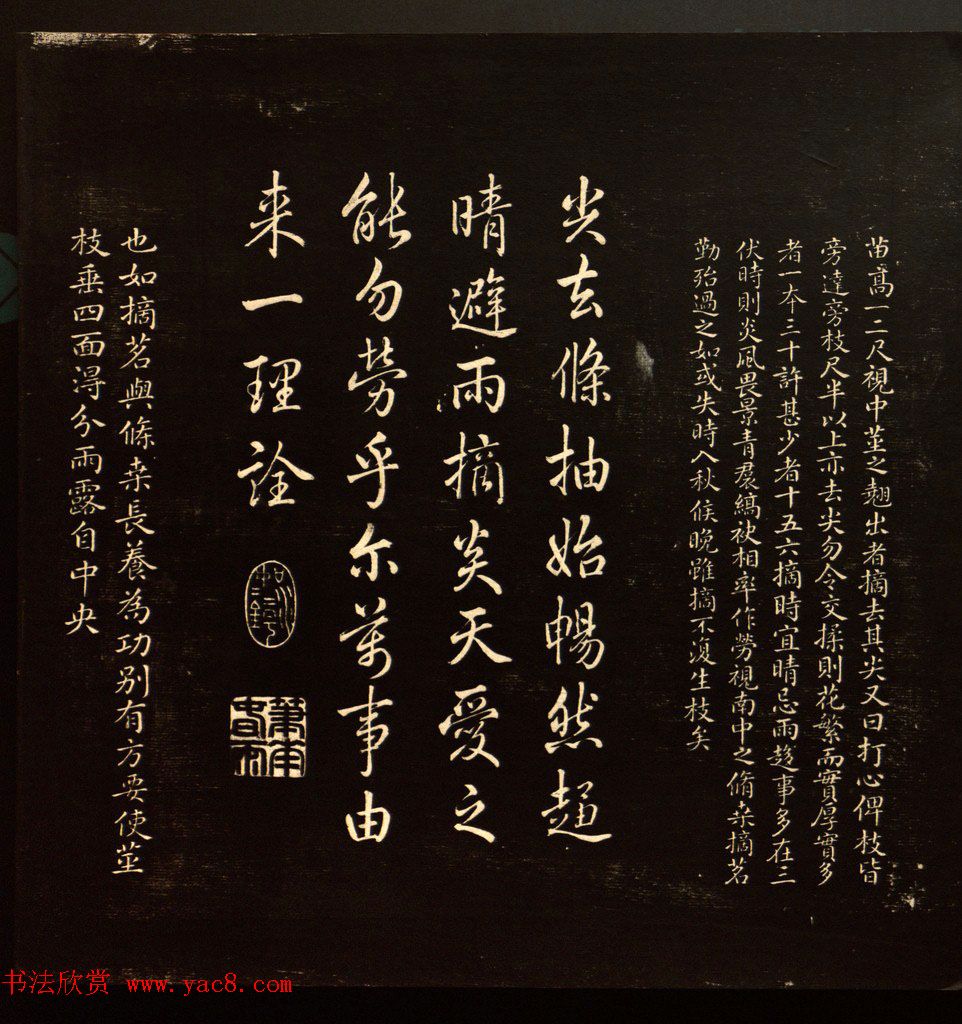 苗高一二尺視中莖之翹出者摘去其尖又曰打心俾枝皆
旁達旁枝尺半以上亦去尖勿令交揉則花繁而實厚實多
者一本三十許甚少者十五六摘時宜晴忌雨趨事多在三
伏時則炎風畏景青裠縞袂相率作勞視南中之脩桒摘茗
勤殆過之如或失時入秋候晚雖摘不復生枝矣
尖去條抽始暢然趨
晴避雨摘炎天愛之
能勿勞乎尔萬事由
来一理詮
也如摘茗與條桒長養為功别有方要使莖
枝垂四面淂分雨露自中央
书法欣赏 www.yac8.com